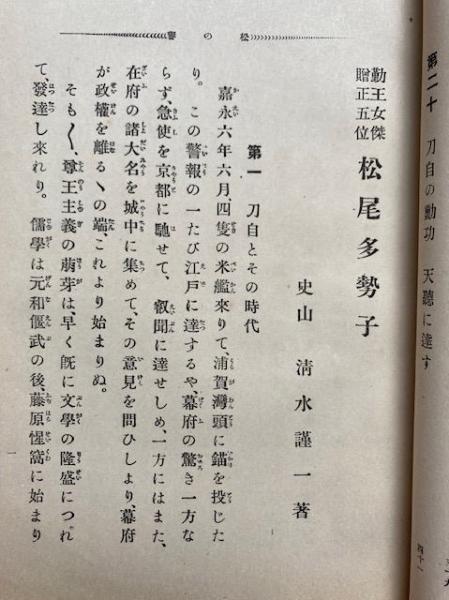 第二十 刀自の勳功 天聽に達す
四十一
松の響
勤王女傑
贈正五位
松尾多勢子
史山 淸水謹一著
第一 刀自とその時代
嘉永六年六月、四隻の米艦來りて、浦賀灣頭に錨を投じた
り。この警報の一たび江戶に達するや、幕府の驚き一方な
らず、急使を京都に馳せて、叡聞に達せしめ、一方にはまた、
在府の諸大名を城中に集めて、その意見を問ひしより、幕府
が政權を離るゝの端、これより始まりぬ。
そも〳〵、尊王主義の萠芽は、早く旣に文學の隆盛につれ
て、發達し來れり。儒學は元和偃武の後、藤原惺窩に始まり
一